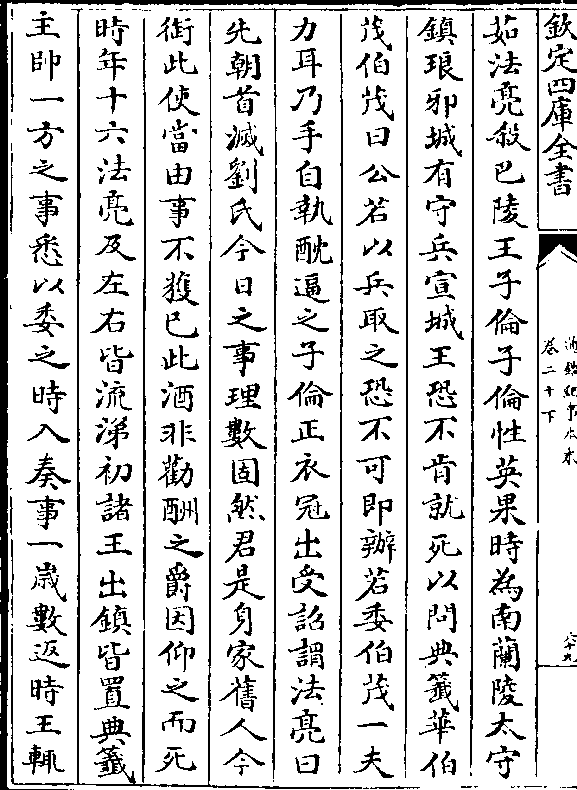 欽定四庫全書
通鑑紀事本末
卷二十下
六十九
茹法亮殺巴陵王子倫子倫性英果時為南蘭陵太守
鎮琅邪城有守兵宣城王恐不肯就死以問典籖華伯
茂伯茂曰公若以兵取之恐不可即辦若委伯茂一夫
力耳乃手自執酖逼之子倫正衣冠出受詔謂法亮曰
先朝首滅劉氏今日之事理數固然君是身家舊人今
銜此使當由事不獲已此酒非勸酬之爵因仰之而死
時年十六法亮及左右皆流涕初諸王出鎮皆置典籖
主帥一方之事悉以委之時入奏事一嵗數返時王輒